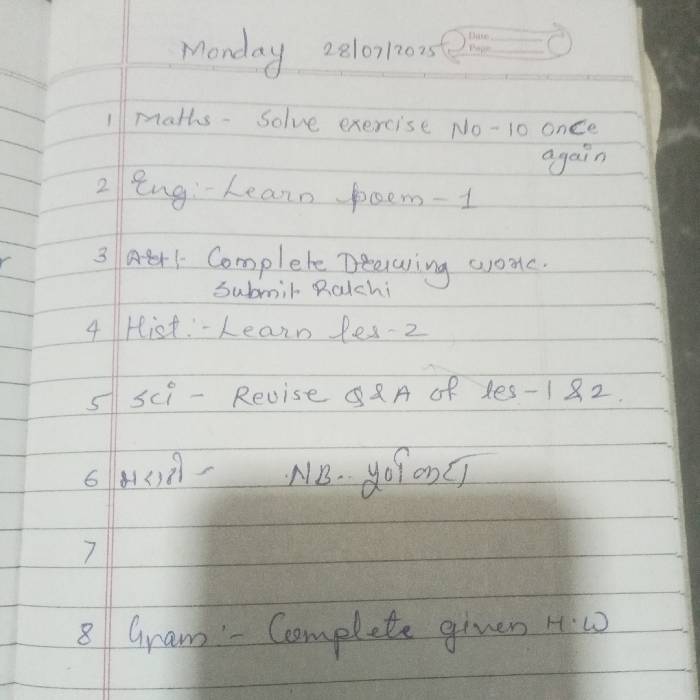 Monday 28/07/2025
Date
Page
1 Maths - Solve exercise No-10 once
again
2 Eng:- Learn poem-1
3 Art:- Complete Drawing work.
Submit Rakhi
4 Hist:- Learn les-2
5 Sci - Revise Q&A of les-1 & 2.
6 मराठी - NB.. पूर्ण करा
7
8 Gram:- Complete given H.W